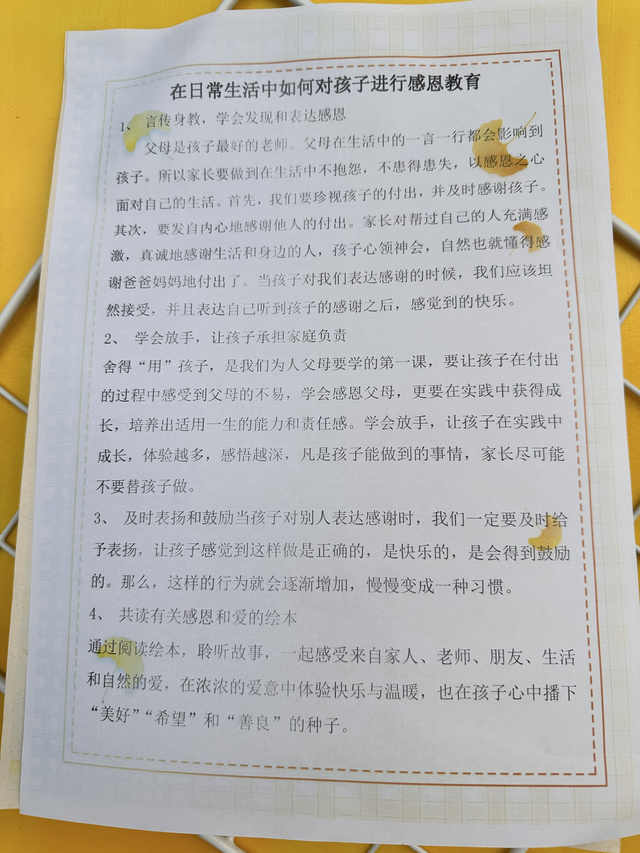 在日常生活中如何对孩子进行感恩教育
1、 言传身教，学会发现和表达感恩
父母是孩子最好的老师。父母在生活中的一言一行都会影响到
孩子。所以家长要做到在生活中不抱怨，不患得患失，以感恩之心
面对自己的生活。首先，我们要珍视孩子的付出，并及时感谢孩子。
其次，要发自内心地感谢他人的付出。家长对帮过自己的人充满感
激，真诚地感谢生活和身边的人，孩子心领神会，自然也就懂得感
谢爸爸妈妈地付出了。当孩子对我们表达感谢的时候，我们应该坦
然接受，并且表达自己听到孩子的感谢之后，感觉到的快乐。
2、 学会放手，让孩子承担家庭负责
舍得“用”孩子，是我们为人父母要学的第一课，要让孩子在付出
的过程中感受到父母的不易，学会感恩父母，更要在实践中获得成
长，培养出适用一生的能力和责任感。学会放手，让孩子在实践中
成长，体验越多，感悟越深，凡是孩子能做到的事情，家长尽可能
不要替孩子做。
3、 及时表扬和鼓励当孩子对别人表达感谢时，我们一定要及时给
予表扬，让孩子感觉到这样做是正确的，是快乐的，是会得到鼓励
的。那么，这样的行为就会逐渐增加，慢慢变成一种习惯。
4、 共读有关感恩和爱的绘本
通过阅读绘本，聆听故事，一起感受来自家人、老师、朋友、生活
和自然的爱，在浓浓的爱意中体验快乐与温暖，也在孩子心中播下
“美好”“希望”和“善良”的种子。